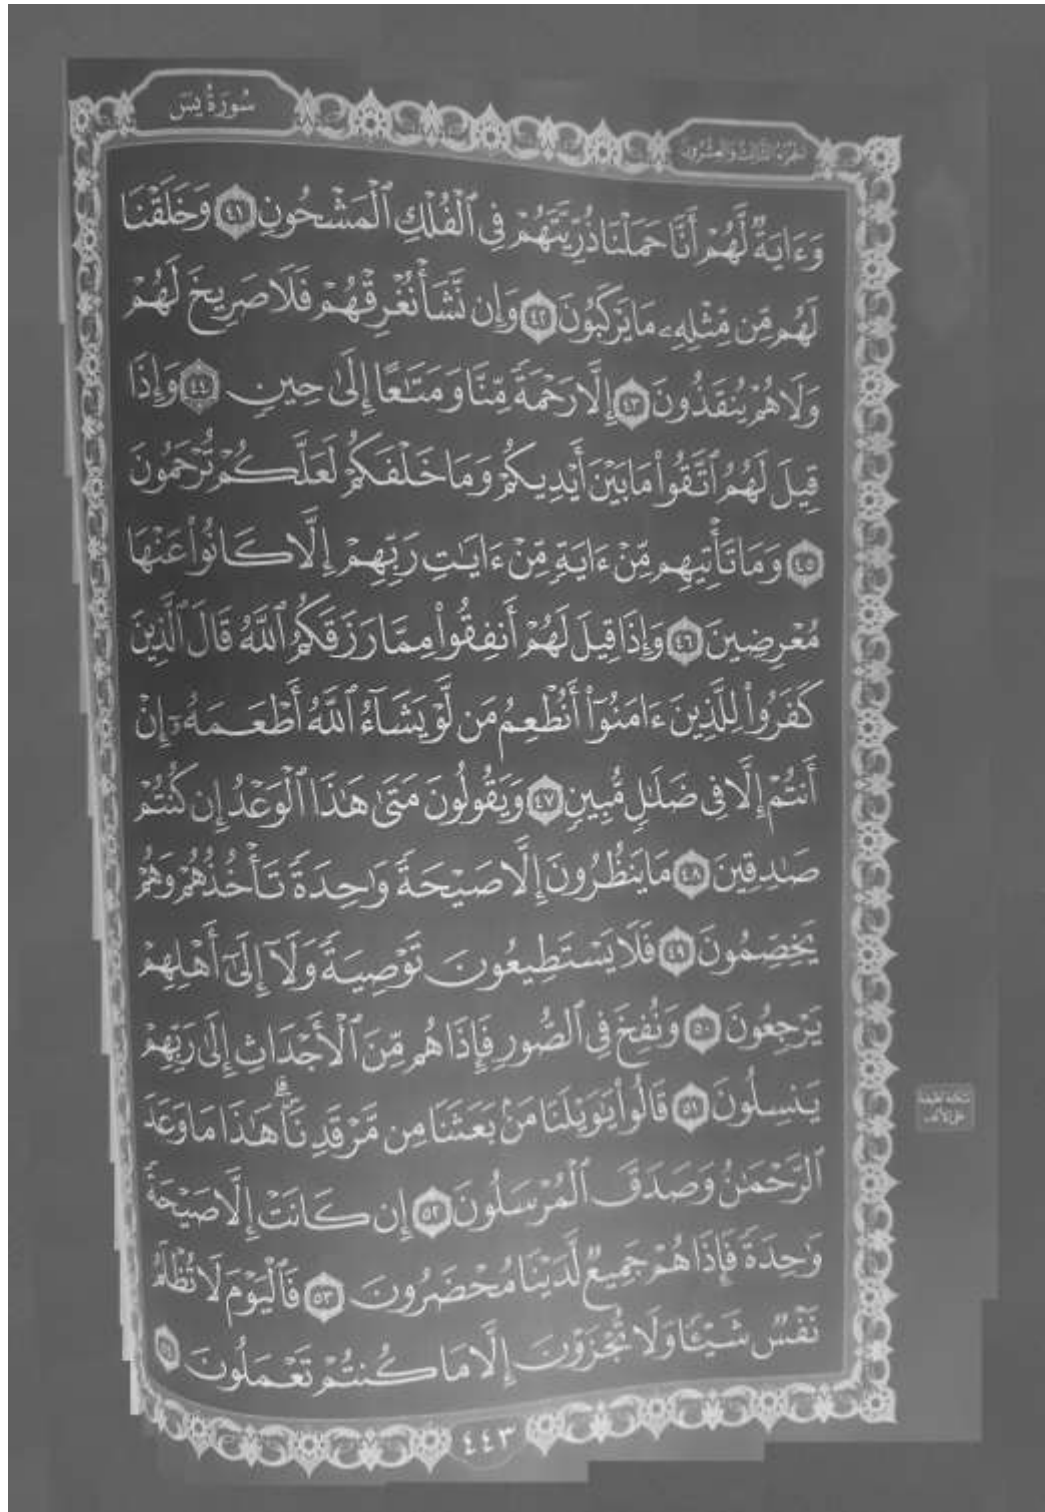 سُورَةُ يسٓ
الجزء الثالث والعشرون
وَءَايَةٌ لَّهُمْ أَنَّا حَمَلْنَا ذُرِّيَّتَهُمْ فِي ٱلْفُلْكِ ٱلْمَشْحُونِ ٤١ وَخَلَقْنَا
لَهُم مِّن مِّثْلِهِۦ مَا يَرْكَبُونَ ٤٢ وَإِن نَّشَأْ نُغْرِقْهُمْ فَلَا صَرِيخَ لَهُمْ
وَلَا هُمْ يُنقَذُونَ ٤٣ إِلَّا رَحْمَةً مِّنَّا وَمَتَٰعًا إِلَىٰ حِينٍ ٤٤ وَإِذَا
قِيلَ لَهُمُ ٱتَّقُوا۟ مَا بَيْنَ أَيْدِيكُمْ وَمَا خَلْفَكُمْ لَعَلَّكُمْ تُرْحَمُونَ
٤٥ وَمَا تَأْتِيهِم مِّنْ ءَايَةٍ مِّنْ ءَايَٰتِ رَبِّهِمْ إِلَّا كَانُوا۟ عَنْهَا
مُعْرِضِينَ ٤٦ وَإِذَا قِيلَ لَهُمْ أَنفِقُوا۟ مِمَّا رَزَقَكُمُ ٱللَّهُ قَالَ ٱلَّذِينَ
كَفَرُوا۟ لِلَّذِينَ ءَامَنُوٓا۟ أَنُطْعِمُ مَن لَّوْ يَشَآءُ ٱللَّهُ أَطْعَمَهُۥٓ إِنْ
أَنتُمْ إِلَّا فِي ضَلَٰلٍ مُّبِينٍ ٤٧ وَيَقُولُونَ مَتَىٰ هَٰذَا ٱلْوَعْدُ إِن كُنتُمْ
صَٰدِقِينَ ٤٨ مَا يَنظُرُونَ إِلَّا صَيْحَةً وَٰحِدَةً تَأْخُذُهُمْ وَهُمْ
يَخِصِّمُونَ ٤٩ فَلَا يَسْتَطِيعُونَ تَوْصِيَةً وَلَآ إِلَىٰٓ أَهْلِهِمْ
يَرْجِعُونَ ٥٠ وَنُفِخَ فِي ٱلصُّورِ فَإِذَا هُم مِّنَ ٱلْأَجْدَاثِ إِلَىٰ رَبِّهِمْ
يَنسِلُونَ ٥١ قَالُوا۟ يَٰوَيْلَنَا مَنۢ بَعَثَنَا مِن مَّرْقَدِنَا ۗ هَٰذَا مَا وَعَدَ
ٱلرَّحْمَٰنُ وَصَدَقَ ٱلْمُرْسَلُونَ ٥٢ إِن كَانَتْ إِلَّا صَيْحَةً
وَٰحِدَةً فَإِذَا هُمْ جَمِيعٌ لَّدَيْنَا مُحْضَرُونَ ٥٣ فَٱلْيَوْمَ لَا تُظْلَمُ
نَفْسٌ شَيْـًٔا وَلَا تُجْزَوْنَ إِلَّا مَا كُنتُمْ تَعْمَلُونَ ٥٤
٤٤٣